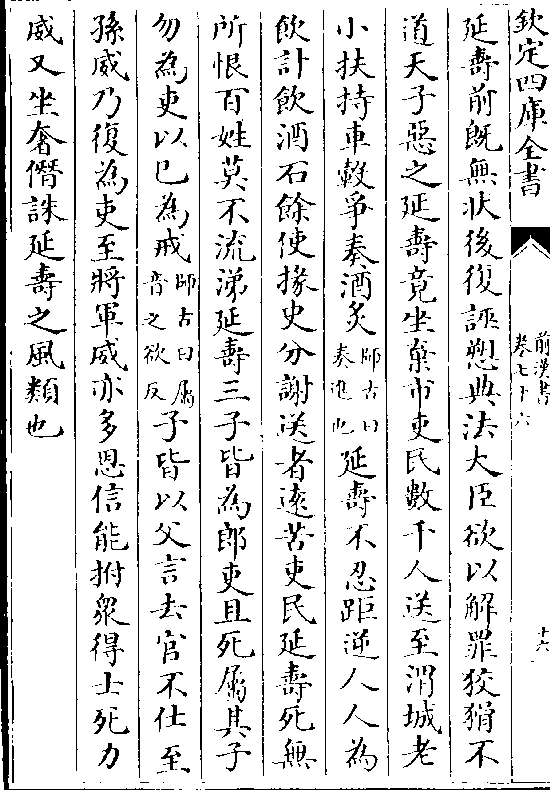 欽定四庫全書
前漢書
卷七十六
十六
延壽前既無狀後復誣愬典法大臣欲以解罪狡猾不
道天子惡之延壽竟坐棄市吏民數千人送至渭城老
小扶持車轂爭奏酒炙師古曰奏進也延壽不忍距逆人人為
飲計飲酒石餘使掾史分謝送者遠苦吏民延壽死無
所恨百姓莫不流涕延壽三子皆為郎吏且死屬其子
勿為吏以己為戒師古曰屬音之欲反子皆以父言去官不仕至
孫威乃復為吏至將軍威亦多恩信能拊衆得士死力
威又坐奢僭誅延壽之風類也